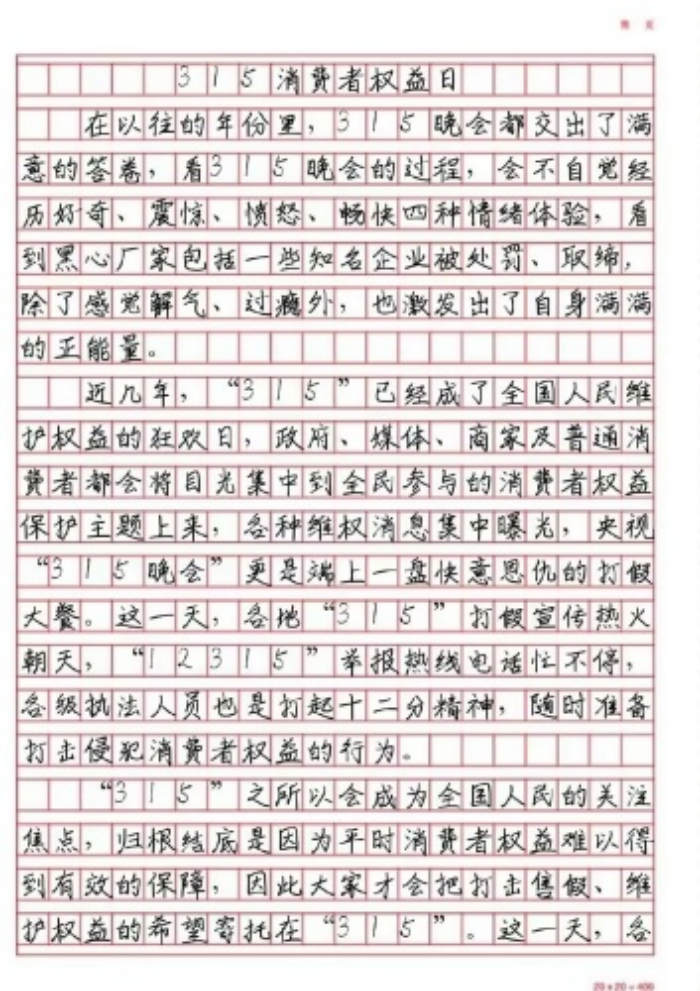 315消费者权益日
在以往的年份里，315晚会都交出了满
意的答卷，看315晚会的过程，会不自觉经
历好奇、震惊、愤怒、畅快四种情绪体验，看
到黑心厂家包括一些知名企业被处罚、取缔，
除了感觉解气、过瘾外，也激发出了自身满满
的正能量。
近几年，“315”已经成了全国人民维
护权益的狂欢日，政府、媒体、商家及普通消
费者都会将目光集中到全民参与的消费者权益
保护主题上来，各种维权消息集中曝光，央视
“315晚会”更是端上一盘快意恩仇的打假
大餐。这一天，各地“315”打假宣传热火
朝天，“12315”举报热线电话忙不停，
各级执法人员也是打起十二分精神，随时准备
打击侵犯消费者权益的行为。
“315”之所以会成为全国人民的关注
焦点，归根结底是因为平时消费者权益难以得
到有效的保障，因此大家才会把打击售假、维
护权益的希望寄托在“315”。这一天，各
20×20=400